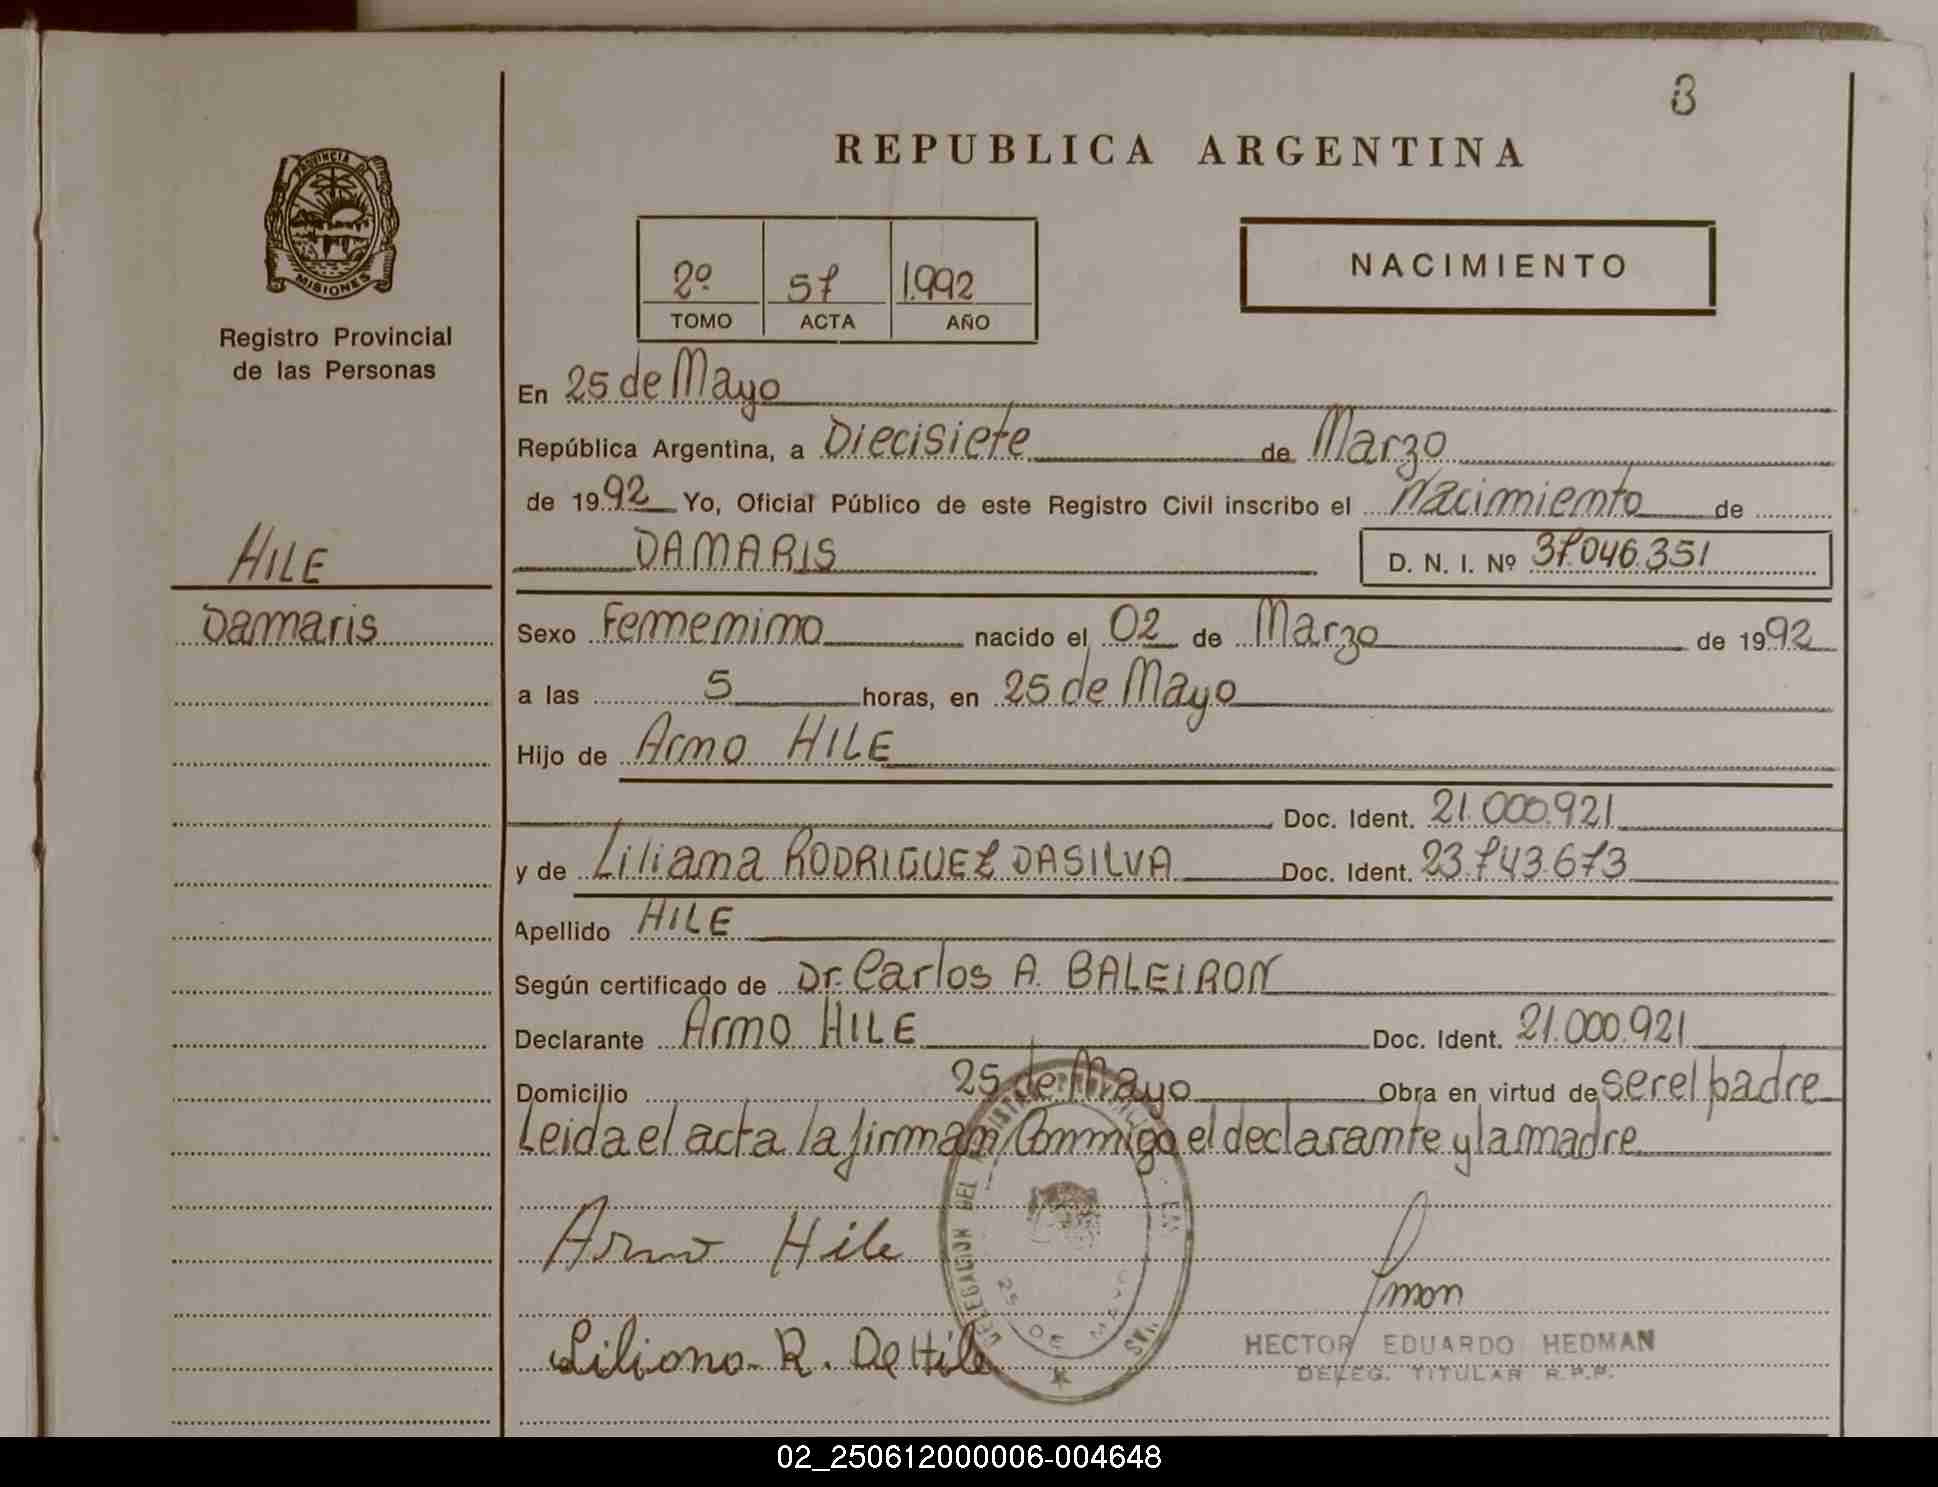 3
REPUBLICA ARGENTINA
PROVINCIA DE
MISIONES
Registro Provincial
de las Personas
2º 57 1.992
TOMO ACTA AÑO
NACIMIENTO
En 25 de Mayo
República Argentina, a Diecisiete de Marzo
de 1992 Yo, Oficial Público de este Registro Civil inscribo el Nacimiento de
HILE
DAMARIS D. N. I. Nº 37.046.351
Damaris
Sexo Femenino nacido el 02 de Marzo de 1992
a las 5 horas, en 25 de Mayo
Hijo de Arno HILE
Doc. Ident. 21.000.921
y de Liliana RODRIGUEZ DASILVA Doc. Ident. 23.743.673
Apellido HILE
Según certificado de Dr. Carlos A. BALEIRON
Declarante Arno HILE Doc. Ident. 21.000.921
Domicilio 25 de Mayo Obra en virtud de ser el padre
Leida el acta la firman Conmigo el declarante y la madre
Arno Hile
DELEGACION DEL
EN
25 DE MAYO
Liliana R. De Hile
HECTOR EDUARDO HEDMAN
DELEG. TITULAR R.P.P.
02_250612000006-004648